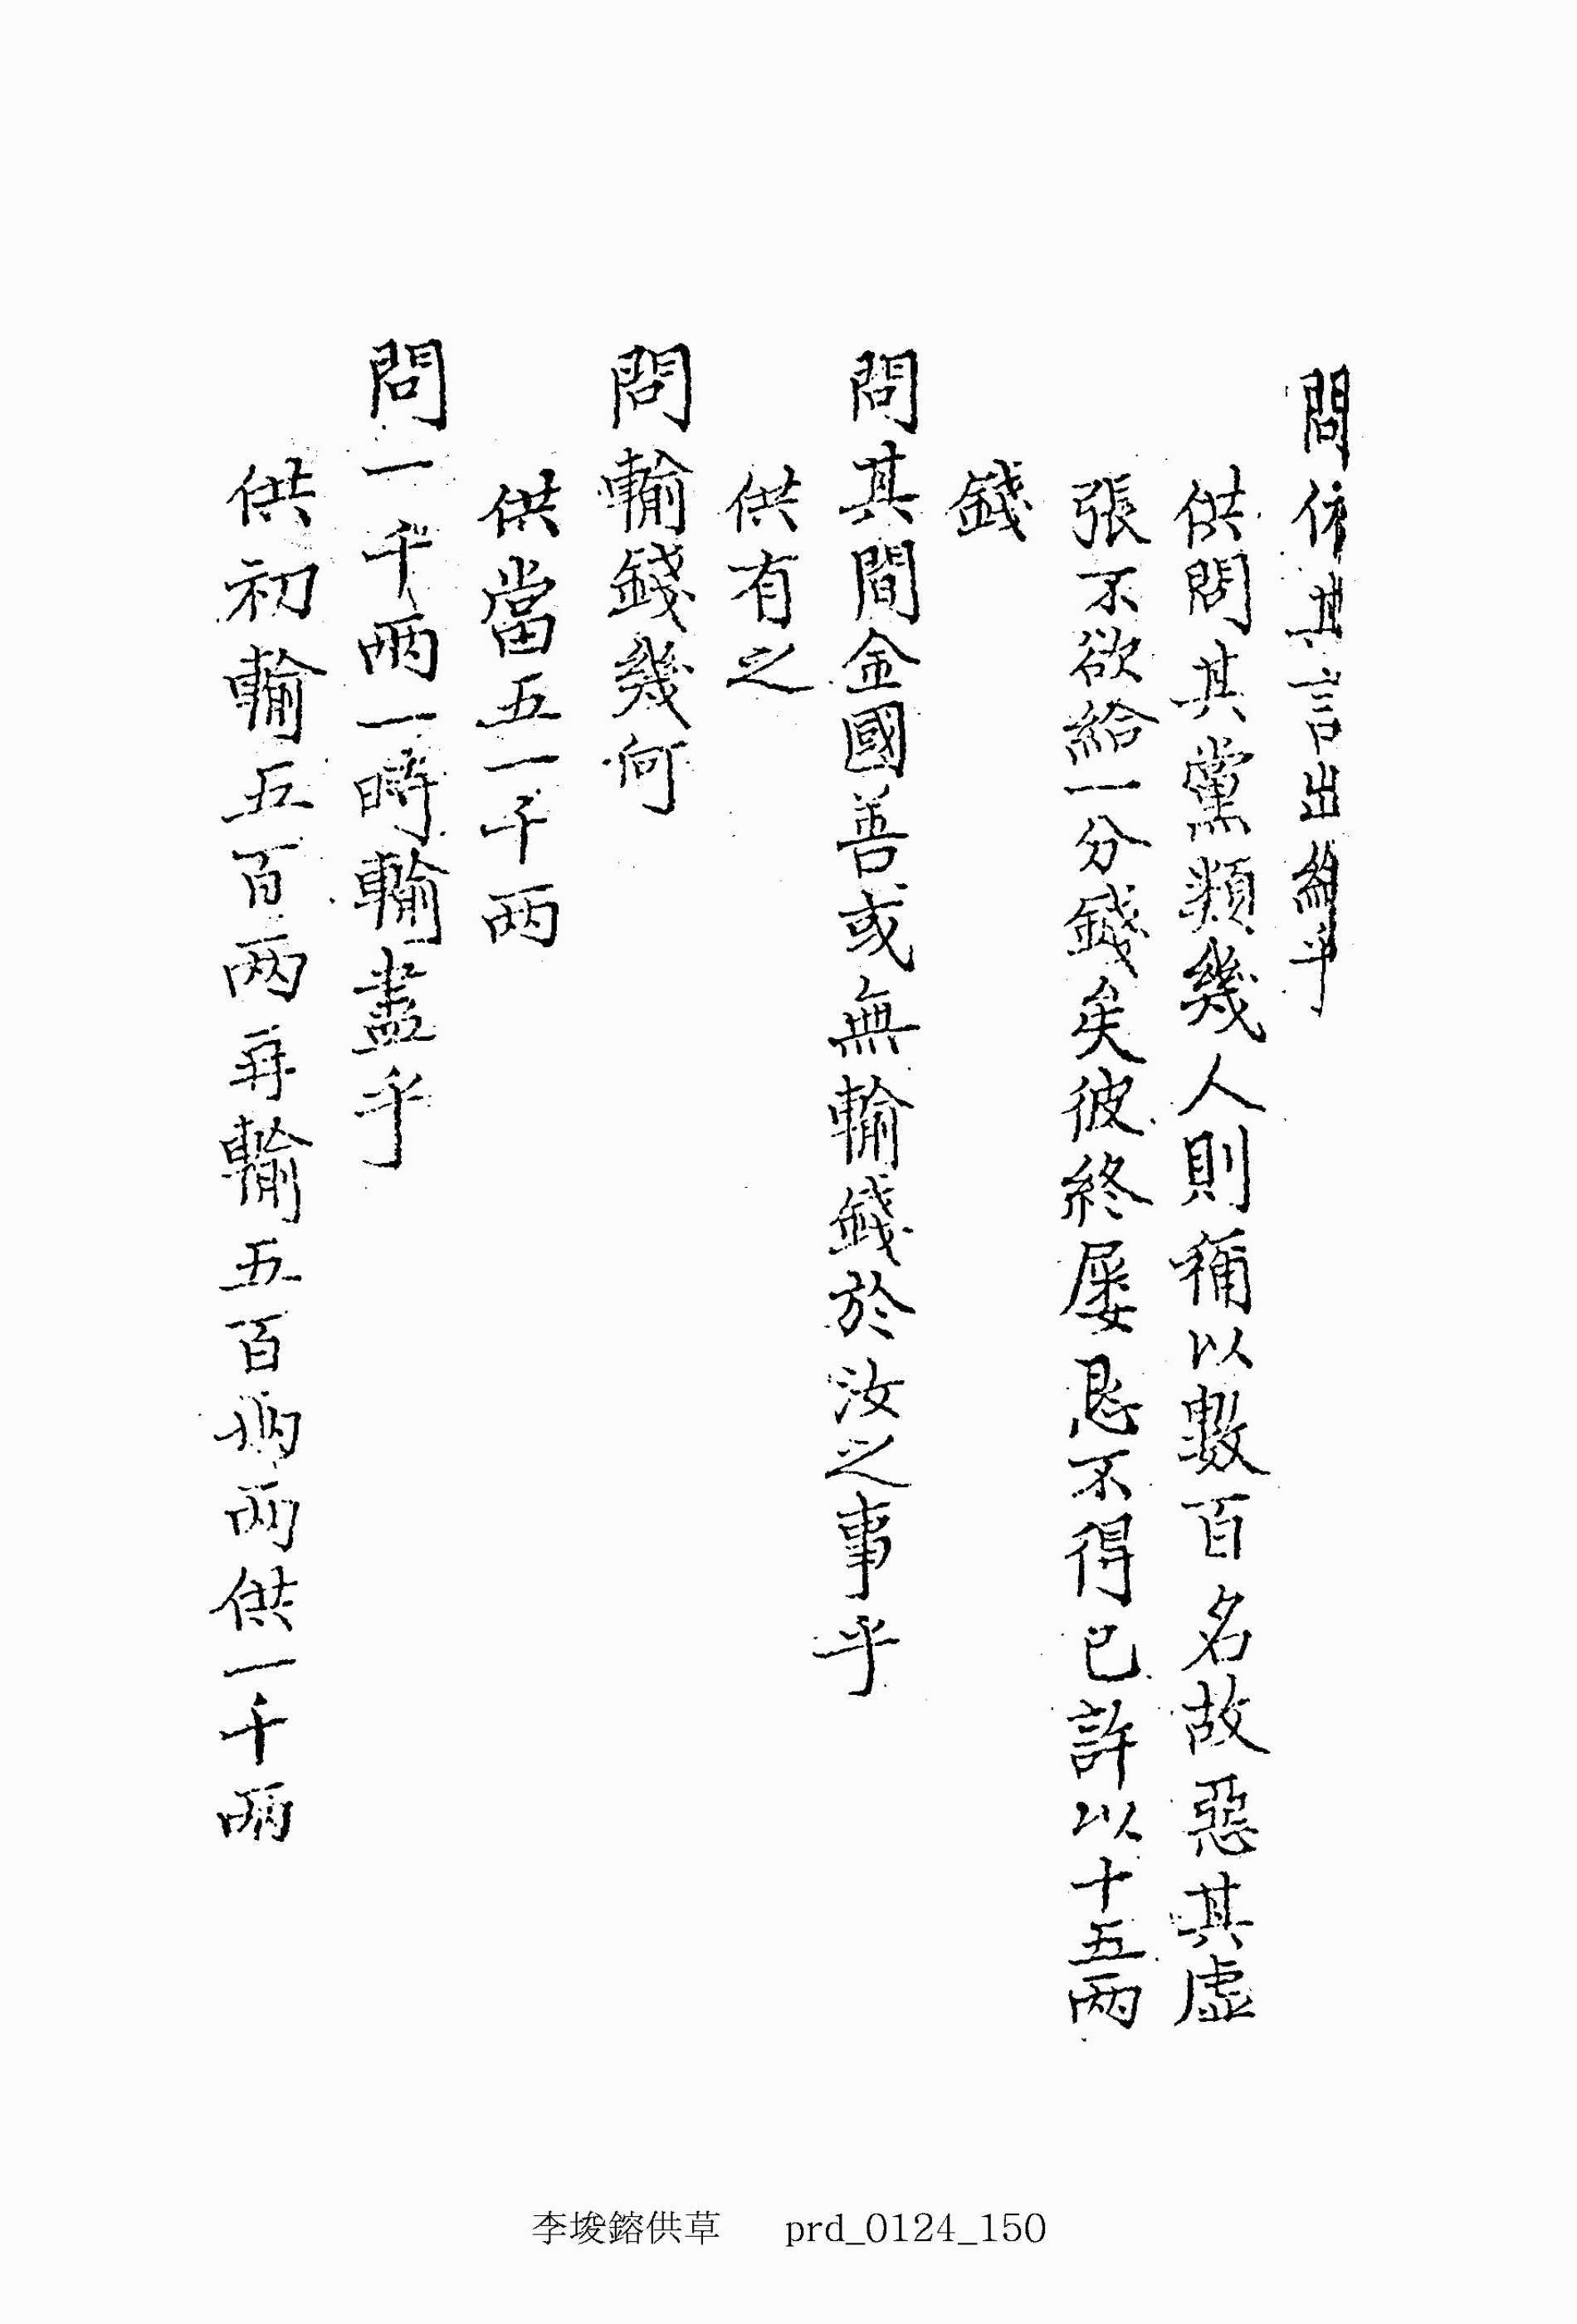 問依其言出給乎
供問其黨類幾人則稱以數百名故惡其虛
張不欲給一分錢矣彼終屢恳不得已許以十五兩
錢
問其間金國善或無輸錢於汝之事乎
供有之
問輸錢幾何
供當五一千兩
問一千兩一時輸盡乎
供初輸五百兩再輸五百兩兩供一千兩
李埈鎔供草 prd_0124_150